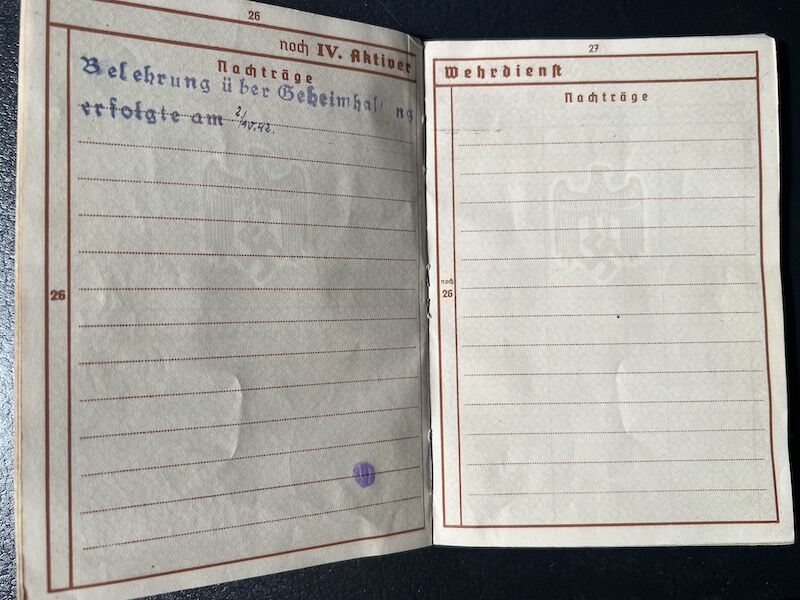 26
noch IV. Aktiver
Nachträge
Belehrung über Geheimhaltung
erfolgte am
26
27
Wehrdienst
Nachträge
noch
26